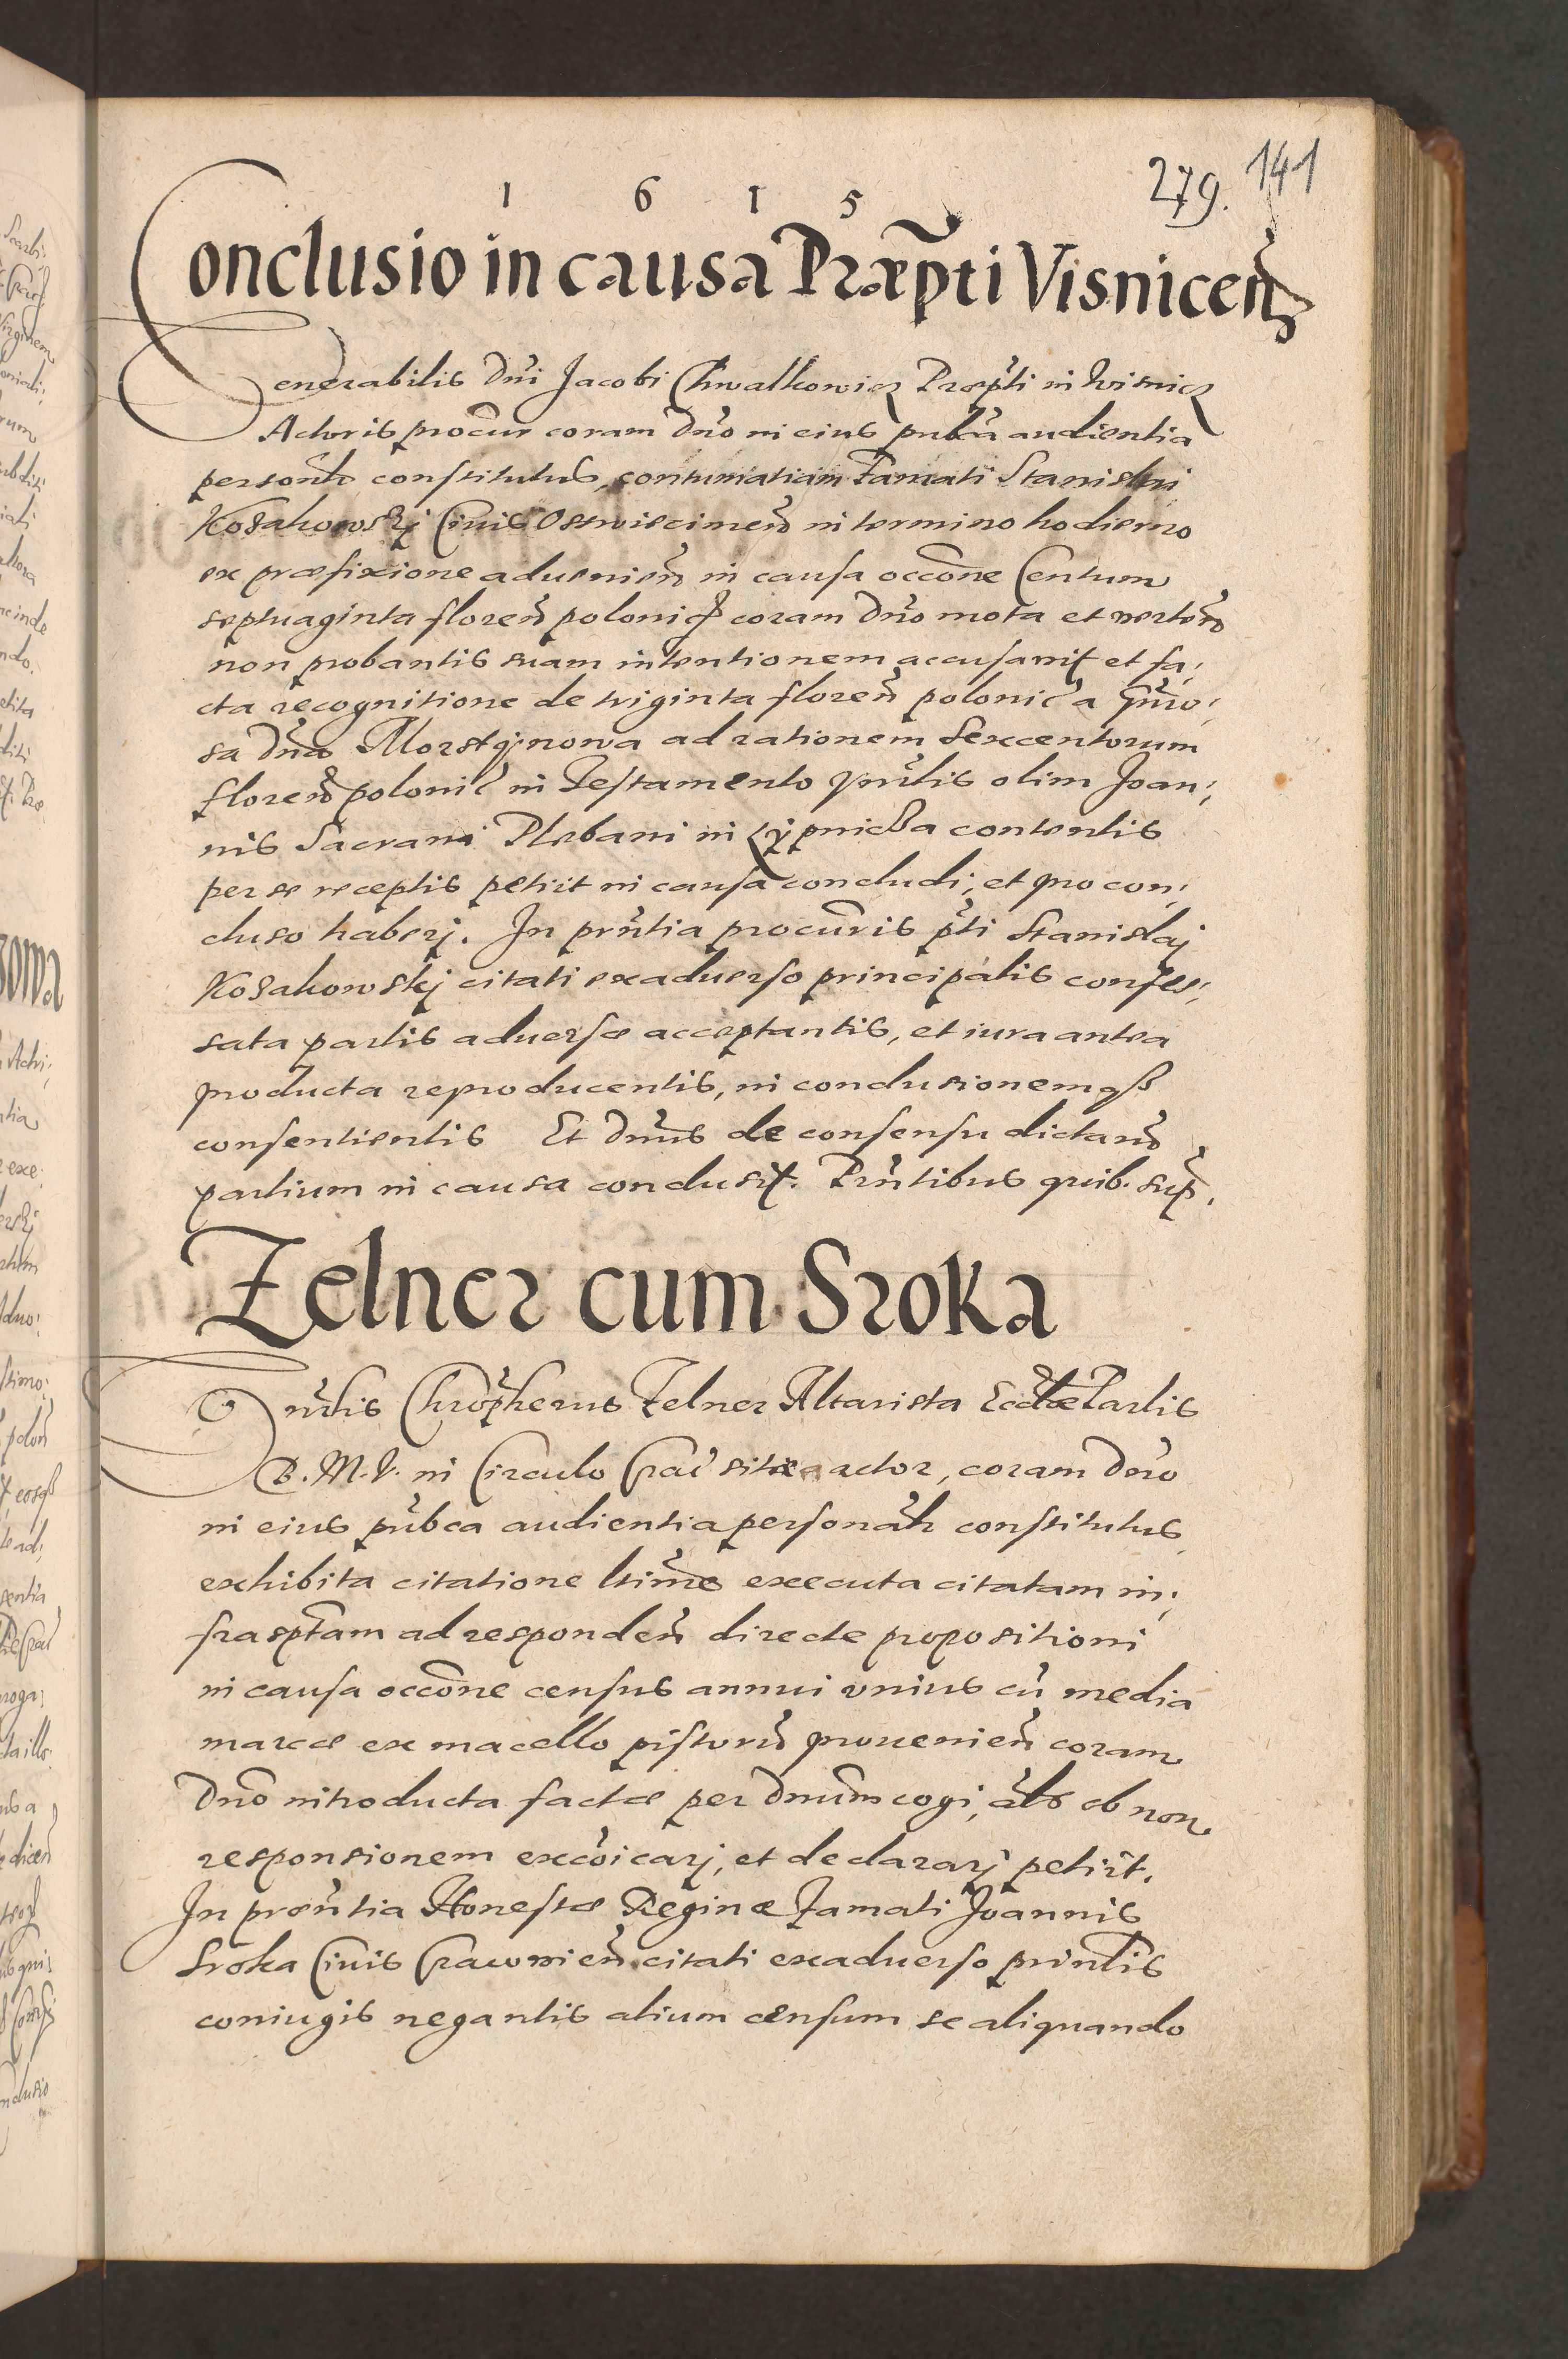 1 6 1 5
279. 141
Conclusio in causa Præpti Visnicen
Venerabilis Dni Jacobi Chwalkowicz Præpti in Wisnicz
Actoris procur coram Dno in eius pubca audientia
personlr constitutus, contumatiam Famati Stanislai
Kosakowskj Civis Osswiecimen in termino hodierno
ex præfixione advenien in causa occone Centum
septuaginta floren polonic coram Dno mota et verten
non probantis suam intentionem accusavit et fa,
cta recognitione de triginta floren polonic a Gnro,
sa Dna Morstqnowa ad rationem Sexcentorum
floren polonic in Testamento Vnrlis olim Joan,
nis Sacrani Plebani in Lypnicza contentis
per se receptis petiit in causa concludi, et pro con,
cluso haberj. In prntia procuris pti Stanislaj
Kosakowskj citati exadverso principalis confes,
sata partis adversæ acceptantis, et iura antea
producta reproducentis, in conclusionemqß
consentientis Et Dnus de consensu dictarum
partium in causa conclusit. Prntibus quib. sup.
Zelner cum Sroka
Vnrlis Chropherus Zelner Altarista Ecclæ Parlis
B. M. V. in Circulo Crac sitæ actor, coram Dno
in eius pubca audientia personalr constitutus
exhibita citatione ltime executa citatam in,
frasptam ad responden directe propositioni
in causa occone census annui unius cu media
marcæ ex macello pistoru provenien coram
Dno introducta factæ per Dnum cogi, als ob non
responsionem excoicarj, et declararj petiit.
In præntia Honestæ Reginæ Famati Joannis
Sroka Civis Cracovien citati exadverso prinlis
coniugis negantis alium censum se aliquando